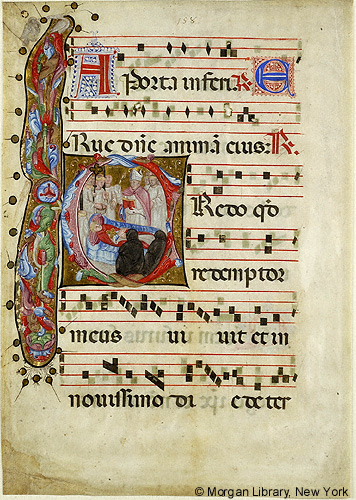 158.
A Porta inferi. R. E
Rue dñe animã eius: R.
C Redo qđ
redemptor
meus vi vit et in
novissimo di e de ter
© Morgan Library, New York